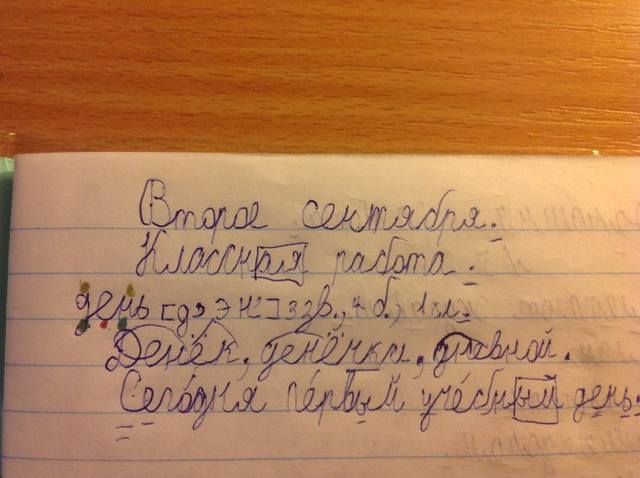 Второе сентября.
Классная работа.
день [д' э н'] 3 зв., 4 б., 1 сл.
Денёк, денёчки, дневной.
Сегодня первый учебный день.